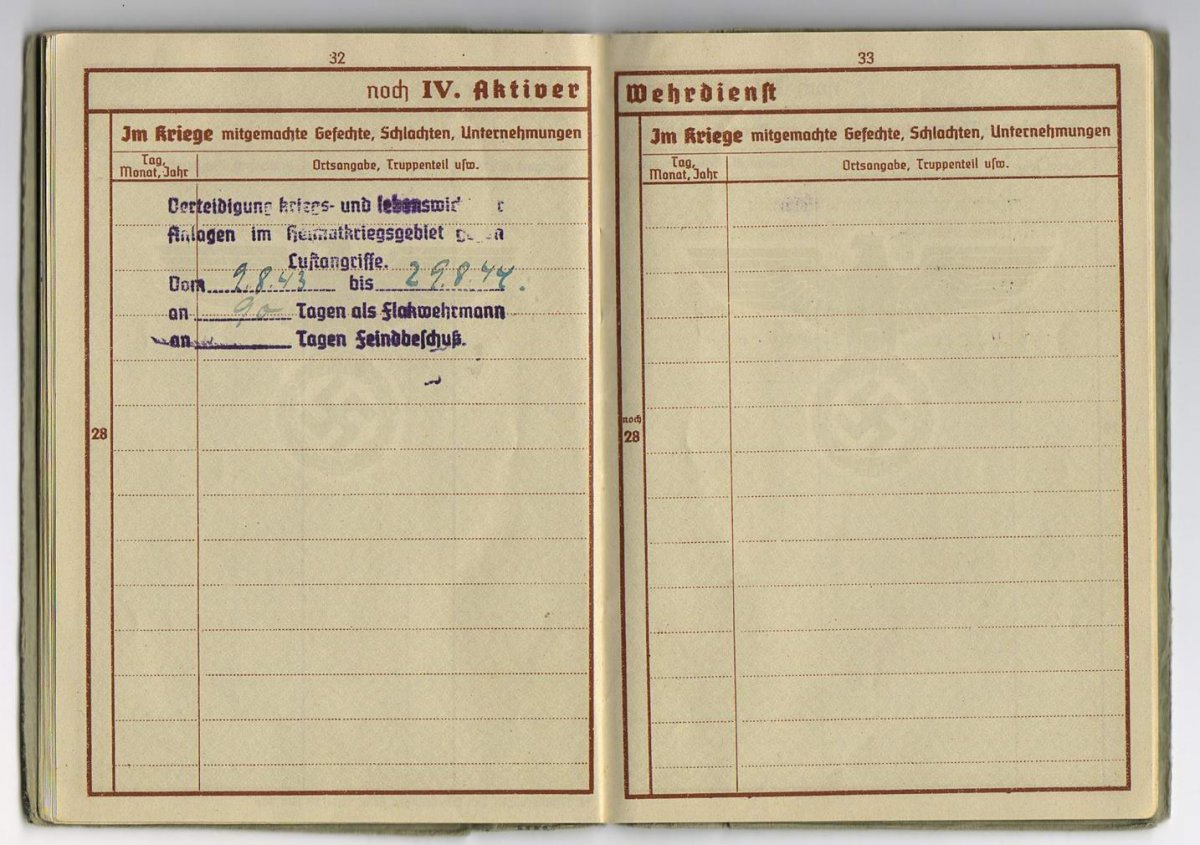 32
noch IV. Aktiver
Im Kriege mitgemachte Gefechte, Schlachten, Unternehmungen
Tag,
Monat, Jahr
Ortsangabe, Truppenteil usw.
Verteidigung kriegs- und
Anlagen im Heimatkriegsgebiet
Luftangriffe.
Vom 9.8.43 bis 29.8.44.
an 90 Tagen als Flakwehrmann
an Tagen Feindbeschuß.
28
33
Wehrdienst
Im Kriege mitgemachte Gefechte, Schlachten, Unternehmungen
Tag,
Monat, Jahr
Ortsangabe, Truppenteil usw.
noch
28